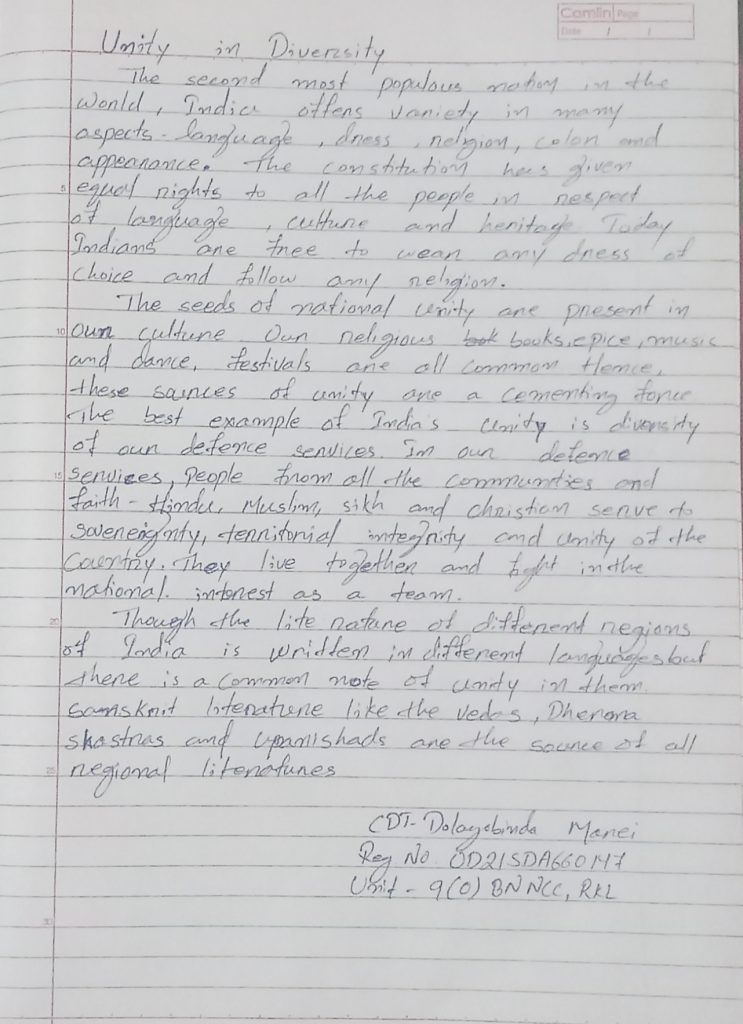 Camlin Page
Date / /
Unity in Diversity
The second most populous nation in the
world, India offers variety in many
aspects - language, dress, religion, color and
appearance. The constitution has given
5 equal rights to all the people in respect
of language, culture and heritage Today
Indians are free to wear any dress of
choice and follow any religion.
The seeds of national unity are present in
10 our culture Our religious books, epice, music
and dance, festivals are all common Hence,
these sources of unity are a cementing force
The best example of India's unity is diversity
of our defence services. In our defence
15 services, people from all the communities and
faith - Hindu, Muslim, sikh and christian serve to
sovereignty, territorial integrity and unity of the
Country. They live together and fight in the
national. interest as a team.
20 Though the lite nature of different regions
of India is written in different languages but
there is a common note of unity in them.
samskrit literature like the vedas, Dherma
shastras and upanishads are the source of all
25 regional literatures
CDT- Dolagobinda
Reg No. OD21SDA660147
Unit - 9(O) BN NCC, RKL
30